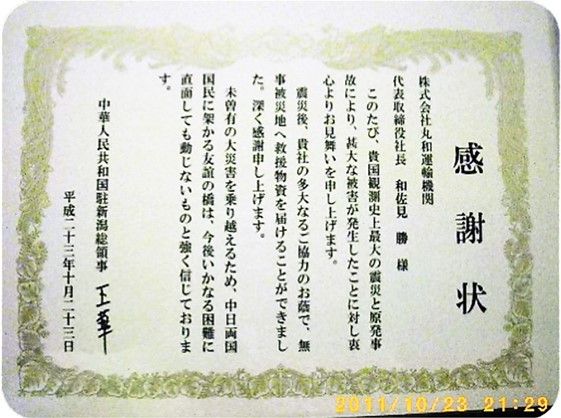 感謝状
株式会社丸和運輸機関
代表取締役社長 和佐見 勝 様
このたび、貴国観測史上最大の震災と原発事
故により、甚大な被害が発生したことに対し衷
心よりお見舞いを申し上げます。
震災後、貴社の多大なるご協力のお蔭で、無
事被災地へ救援物資を届けることができまし
た。深く感謝申し上げます。
未曽有の大災害を乗り越えるため、中日両国
国民に架かる友誼の橋は、今後いかなる困難に
直面しても動じないものと強く信じておりま
す。
中華人民共和国駐新潟総領事 王華
平成二十三年十月二十三日
2011/10/23 21:29